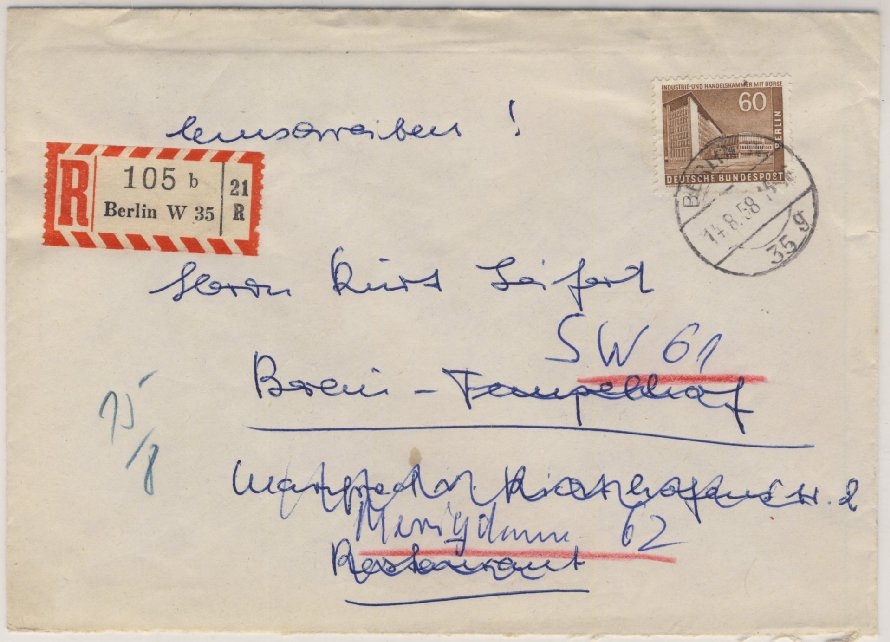 INDUSTRIE- UND HANDELSKAMMER MIT BÖRSE
60
BERLIN
DEUTSCHE BUNDESPOST
Einschreiben !
R 105 b 21
Berlin W 35 R
BERLIN
14.8.58
35 g
Herrn Kurt Seifert
SW 61
Berlin - Tempelhof
15/8
Manfred v. Richthofenstr. 2
Meringdamm 62
Restaurant